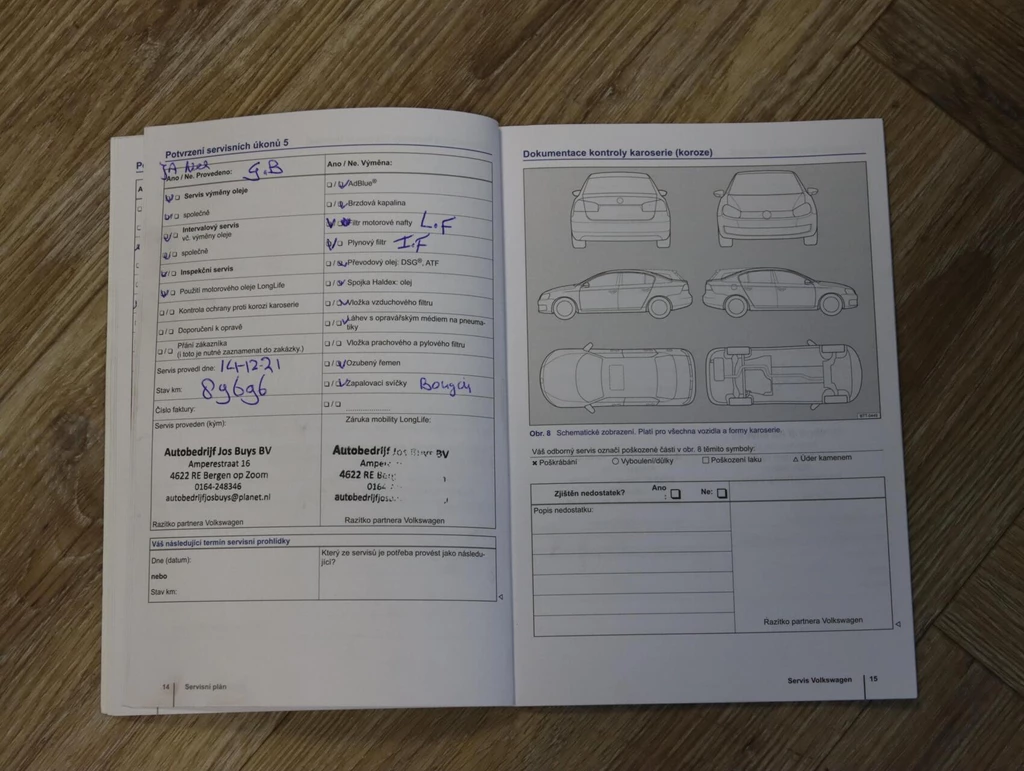 Potvrzení servisních úkonů 5
Ano / Ne. Provedeno: G.B
Servis výměny oleje
společně
Intervalový servis
vč. výměny oleje
společně
Inspekční servis
Použití motorového oleje LongLife
Kontrola ochrany proti korozi karoserie
Doporučení k opravě
Přání zákazníka
(i toto je nutné zaznamenat do zakázky.)
Servis provedl dne: 14-12-21
Stav km: 89696
Číslo faktury:
Servis proveden (kým):
Autobedrijf Jos Buys BV
Amperestraat 16
4622 RE Bergen op Zoom
0164-248346
autobedrijfjosbuys@planet.nl
Razítko partnera Volkswagen
Ano / Ne. Výměna:
AdBlue®
Brzdová kapalina
Filtr motorové nafty L.F
Plynový filtr I.F
Převodový olej: DSG®, ATF
Spojka Haldex: olej
Vložka vzduchového filtru
Láhev s opravářským médiem na pneuma-
tiky
Vložka prachového a pylového filtru
Ozubený řemen
Zapalovací svíčky
Záruka mobility LongLife:
Autobedrijf Jos Buys BV
4622 RE
Razítko partnera Volkswagen
Váš následující termín servisní prohlídky
Dne (datum):
nebo
Stav km:
Který ze servisů je potřeba provést jako následu-
jící?
14 Servisní plán
Dokumentace kontroly karoserie (koroze)
Obr. 8 Schematické zobrazení. Platí pro všechna vozidla a formy karoserie.
Váš odborný servis označí poškozené části v obr. 8 těmito symboly:
× Poškrábání ○ Vyboulení/důlky □ Poškození laku △ Úder kamenem
Zjištěn nedostatek? Ano : □ Ne: □
Popis nedostatku:
Razítko partnera Volkswagen
Servis Volkswagen 15